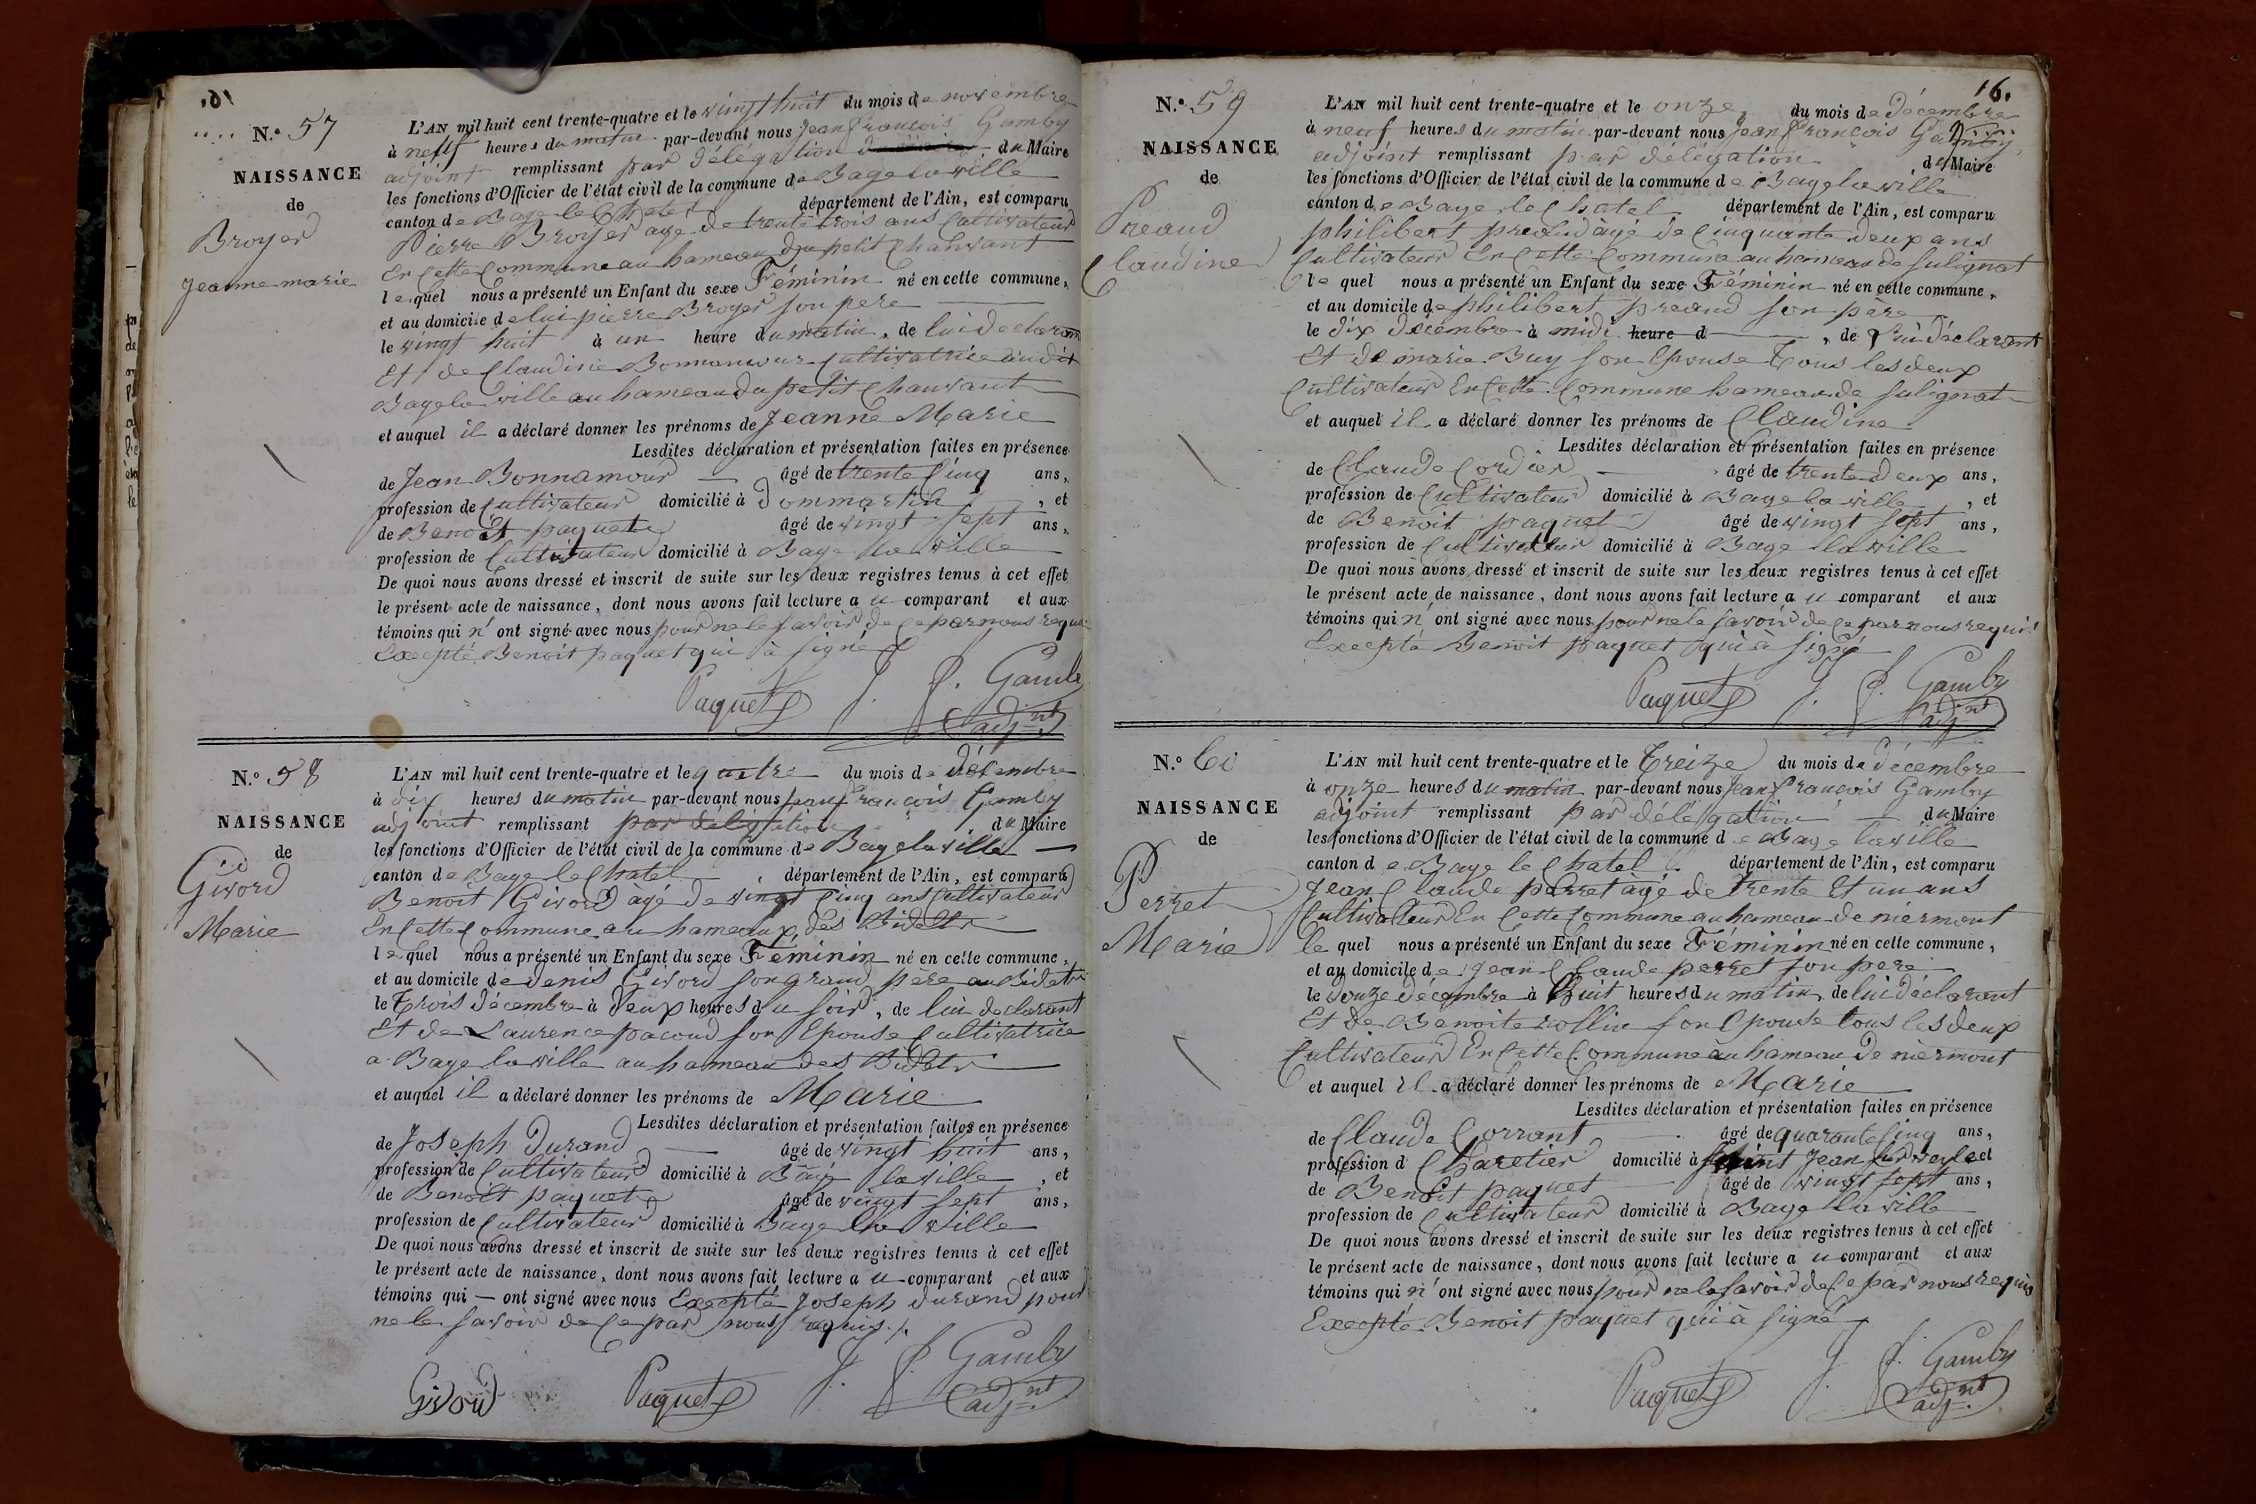 N.º 57
NAISSANCE
de
Broyer
Jeanne marie
L'AN mil huit cent trente-quatre et le vingt huit du mois de novembre
à neuf heures du matin par-devant nous Jean françois Gamby
adjoint remplissant par délégation du Maire
les fonctions d'Officier de l'état civil de la commune de Bage la ville
canton de Bage le Chatel département de l'Ain, est comparu
Pierre Broyer age de trente trois ans Cultivateur
En Cette Commune au hameau du petit Chanvant
lequel nous a présenté un Enfant du sexe Féminin né en cette commune,
et au domicile de lui pierre Broyer son pere
le vingt huit à un heure du matin, de lui declarant
Et de Claudine Bonnamour Cultivatrice audit
Bage la ville au hameau du petit Chanvant
et auquel il a déclaré donner les prénoms de Jeanne Marie
Lesdites déclaration et présentation faites en présence
de Jean Bonnamour âgé de trente Cinq ans,
profession de Cultivateur domicilié à Dommartin, et
de Benoit paquet âgé de vingt sept ans,
profession de Cultivateur domicilié à Bage la ville
De quoi nous avons dressé et inscrit de suite sur les deux registres tenus à cet effet
le présent acte de naissance, dont nous avons fait lecture au comparant et aux
témoins qui n'ont signé avec nous pour ne le savoir de Ce par nous requis
Excepté Benoit paquet qui à signé
Paquet J. f. Gamby
adjnt
N.º 58
NAISSANCE
de
Givord
Marie
L'AN mil huit cent trente-quatre et le quatre du mois de décembre
à dix heures du matin par-devant nous jean françois Gamby
adjoint remplissant par deligation du Maire
les fonctions d'Officier de l'état civil de la commune de Bage la ville
canton de Bage le Chatel département de l'Ain, est comparu
Benoit Givord âgé de vingt Cinq ans Cultivateur
En Cette Commune au hameaux des Bidets
lequel nous a présenté un Enfant du sexe Féminin né en cette commune,
et au domicile de denis Givord son grand père au Bidets
le Trois décembre à deux heures du soir, de lui declarant
Et de Laurence pacoud son Epouse Cultivatrice
a Bage la ville au hameau des Bidets
et auquel il a déclaré donner les prénoms de Marie
Lesdites déclaration et présentation faites en présence
de Joseph Durand âgé de vingt huit ans,
profession de Cultivateur domicilié à Bage la ville, et
de Benoit paquet âgé de vingt sept ans,
profession de Cultivateur domicilié à Bage la ville
De quoi nous avons dressé et inscrit de suite sur les deux registres tenus à cet effet
le présent acte de naissance, dont nous avons fait lecture au comparant et aux
témoins qui — ont signé avec nous Excepté Joseph durand pour
ne le savoir de Ce par nous requis./.
Givord Paquet J. f. Gamby
adjnt
16.
N.º 59
NAISSANCE
de
Preaud
Claudine
L'AN mil huit cent trente-quatre et le onze du mois de décembre
à neuf heures du matin par-devant nous Jean françois Gamby
adjoint remplissant par délégation du Maire
les fonctions d'Officier de l'état civil de la commune de Bage la ville
canton de Bage le Chatel département de l'Ain, est comparu
philibert preaud âgé de Cinquante deux ans
Cultivateur En Cette Commune au hameau de sulignat
lequel nous a présenté un Enfant du sexe Féminin né en cette commune,
et au domicile de philibert preaud son père
le dix decembre à midi heure d, de lui déclarant
Et de marie Buy son Epouse Tous les deux
Cultivateur En Cette Commune hameau de sulignat
et auquel il a déclaré donner les prénoms de Claudine
Lesdites déclaration et présentation faites en présence
de Claude Cordier âgé de trente deux ans,
profession de Cultivateur domicilié à Bage la ville, et
de Benoit paquet âgé de vingt sept ans,
profession de Cultivateur domicilié à Bage la ville
De quoi nous avons dressé et inscrit de suite sur les deux registres tenus à cet effet
le présent acte de naissance, dont nous avons fait lecture au comparant et aux
témoins qui n'ont signé avec nous pour ne le savoir de Ce par nous requis
Excepté Benoit paquet qui à signé
Paquet J. f. Gamby
adjnt
N.º 60
NAISSANCE
de
Perret
Marie
L'AN mil huit cent trente-quatre et le Treize du mois de décembre
à onze heures du matin par-devant nous Jean françois Gamby
adjoint remplissant par délégation du Maire
les fonctions d'Officier de l'état civil de la commune de Bage la ville
canton de Bage le Chatel département de l'Ain, est comparu
Jean Claude perret âgé de trente Et un ans
Cultivateur En Cette Commune au hameau de niermont
le quel nous a présenté un Enfant du sexe Féminin né en cette commune,
et au domicile de jean Claude perret son pere
le douze décembre à huit heures du matin, de lui déclarant
Et de Benoite rollin son Epouse tous les deux
Cultivateur En Cette Commune au hameau de niermont
et auquel il a déclaré donner les prénoms de Marie
Lesdites déclaration et présentation faites en présence
de Claude Corrant âgé de quarante Cinq ans,
profession d Charetier domicilié à saint Jean sur veyle et
de Benoit paquet âgé de vingt sept ans,
profession de Cultivateur domicilié à Bage la ville
De quoi nous avons dressé et inscrit de suite sur les deux registres tenus à cet effet
le présent acte de naissance, dont nous avons fait lecture au comparant et aux
témoins qui n'ont signé avec nous pour ne le savoir de Ce par nous requis
Excepté Benoit paquet qui à signé
Paquet J. f. Gamby
adjnt